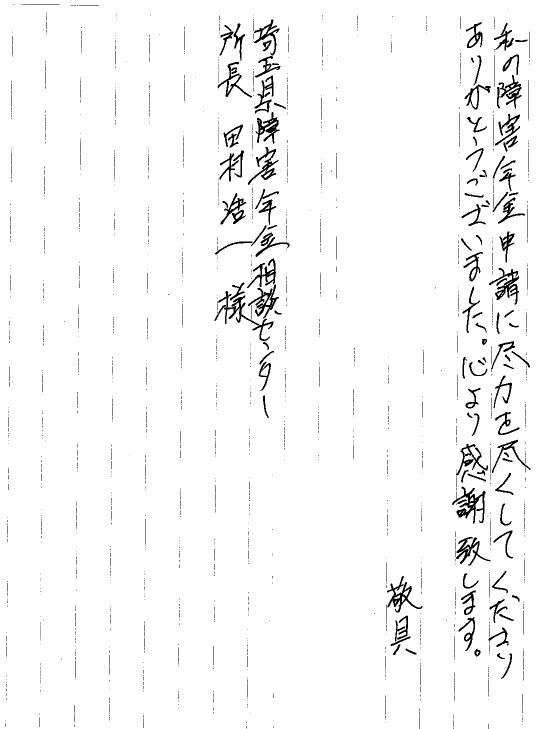 私の障害年金申請に尽力を尽くしてくださり
ありがとうございました。心より感謝致します。
敬具
埼玉県障害年金相談センター
所長 田村浩一 様